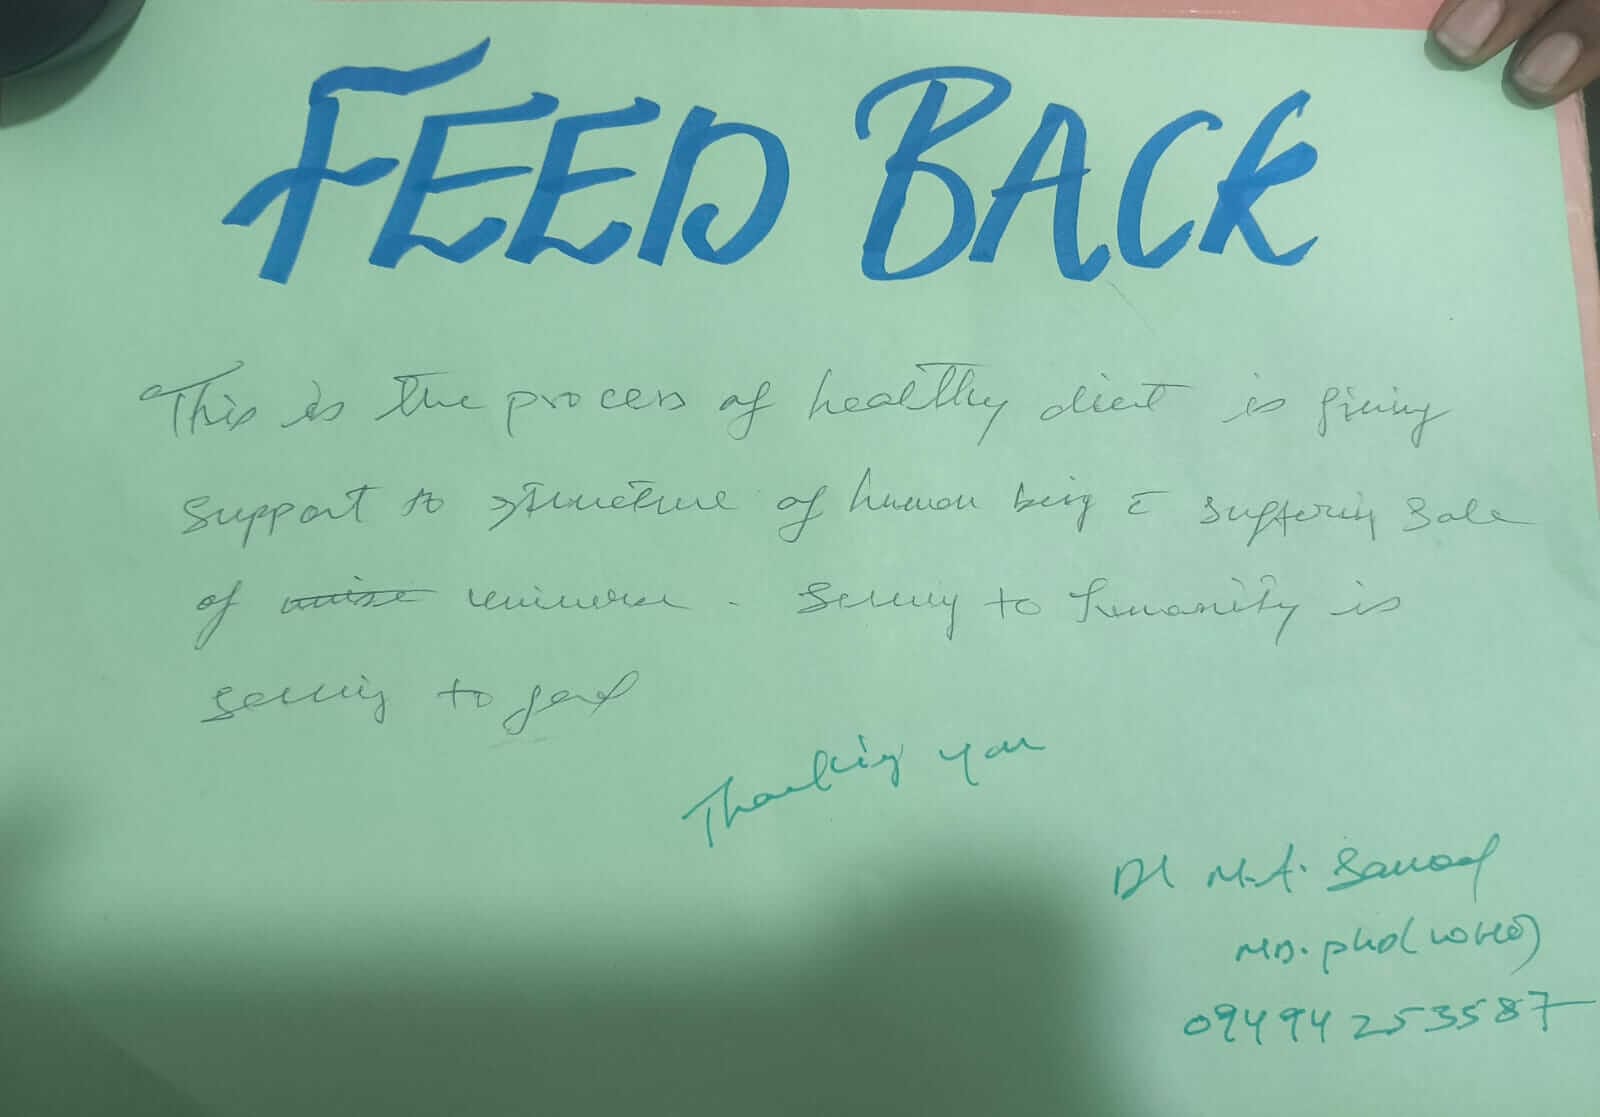 FEED BACK
This is the process of healthy diet is giving
support to structure of human being c̄ suffering
of universe. Serving to humanity is
serving to god
Thanking you
Dr M.A.
MD. phd (WHO)
09494253587